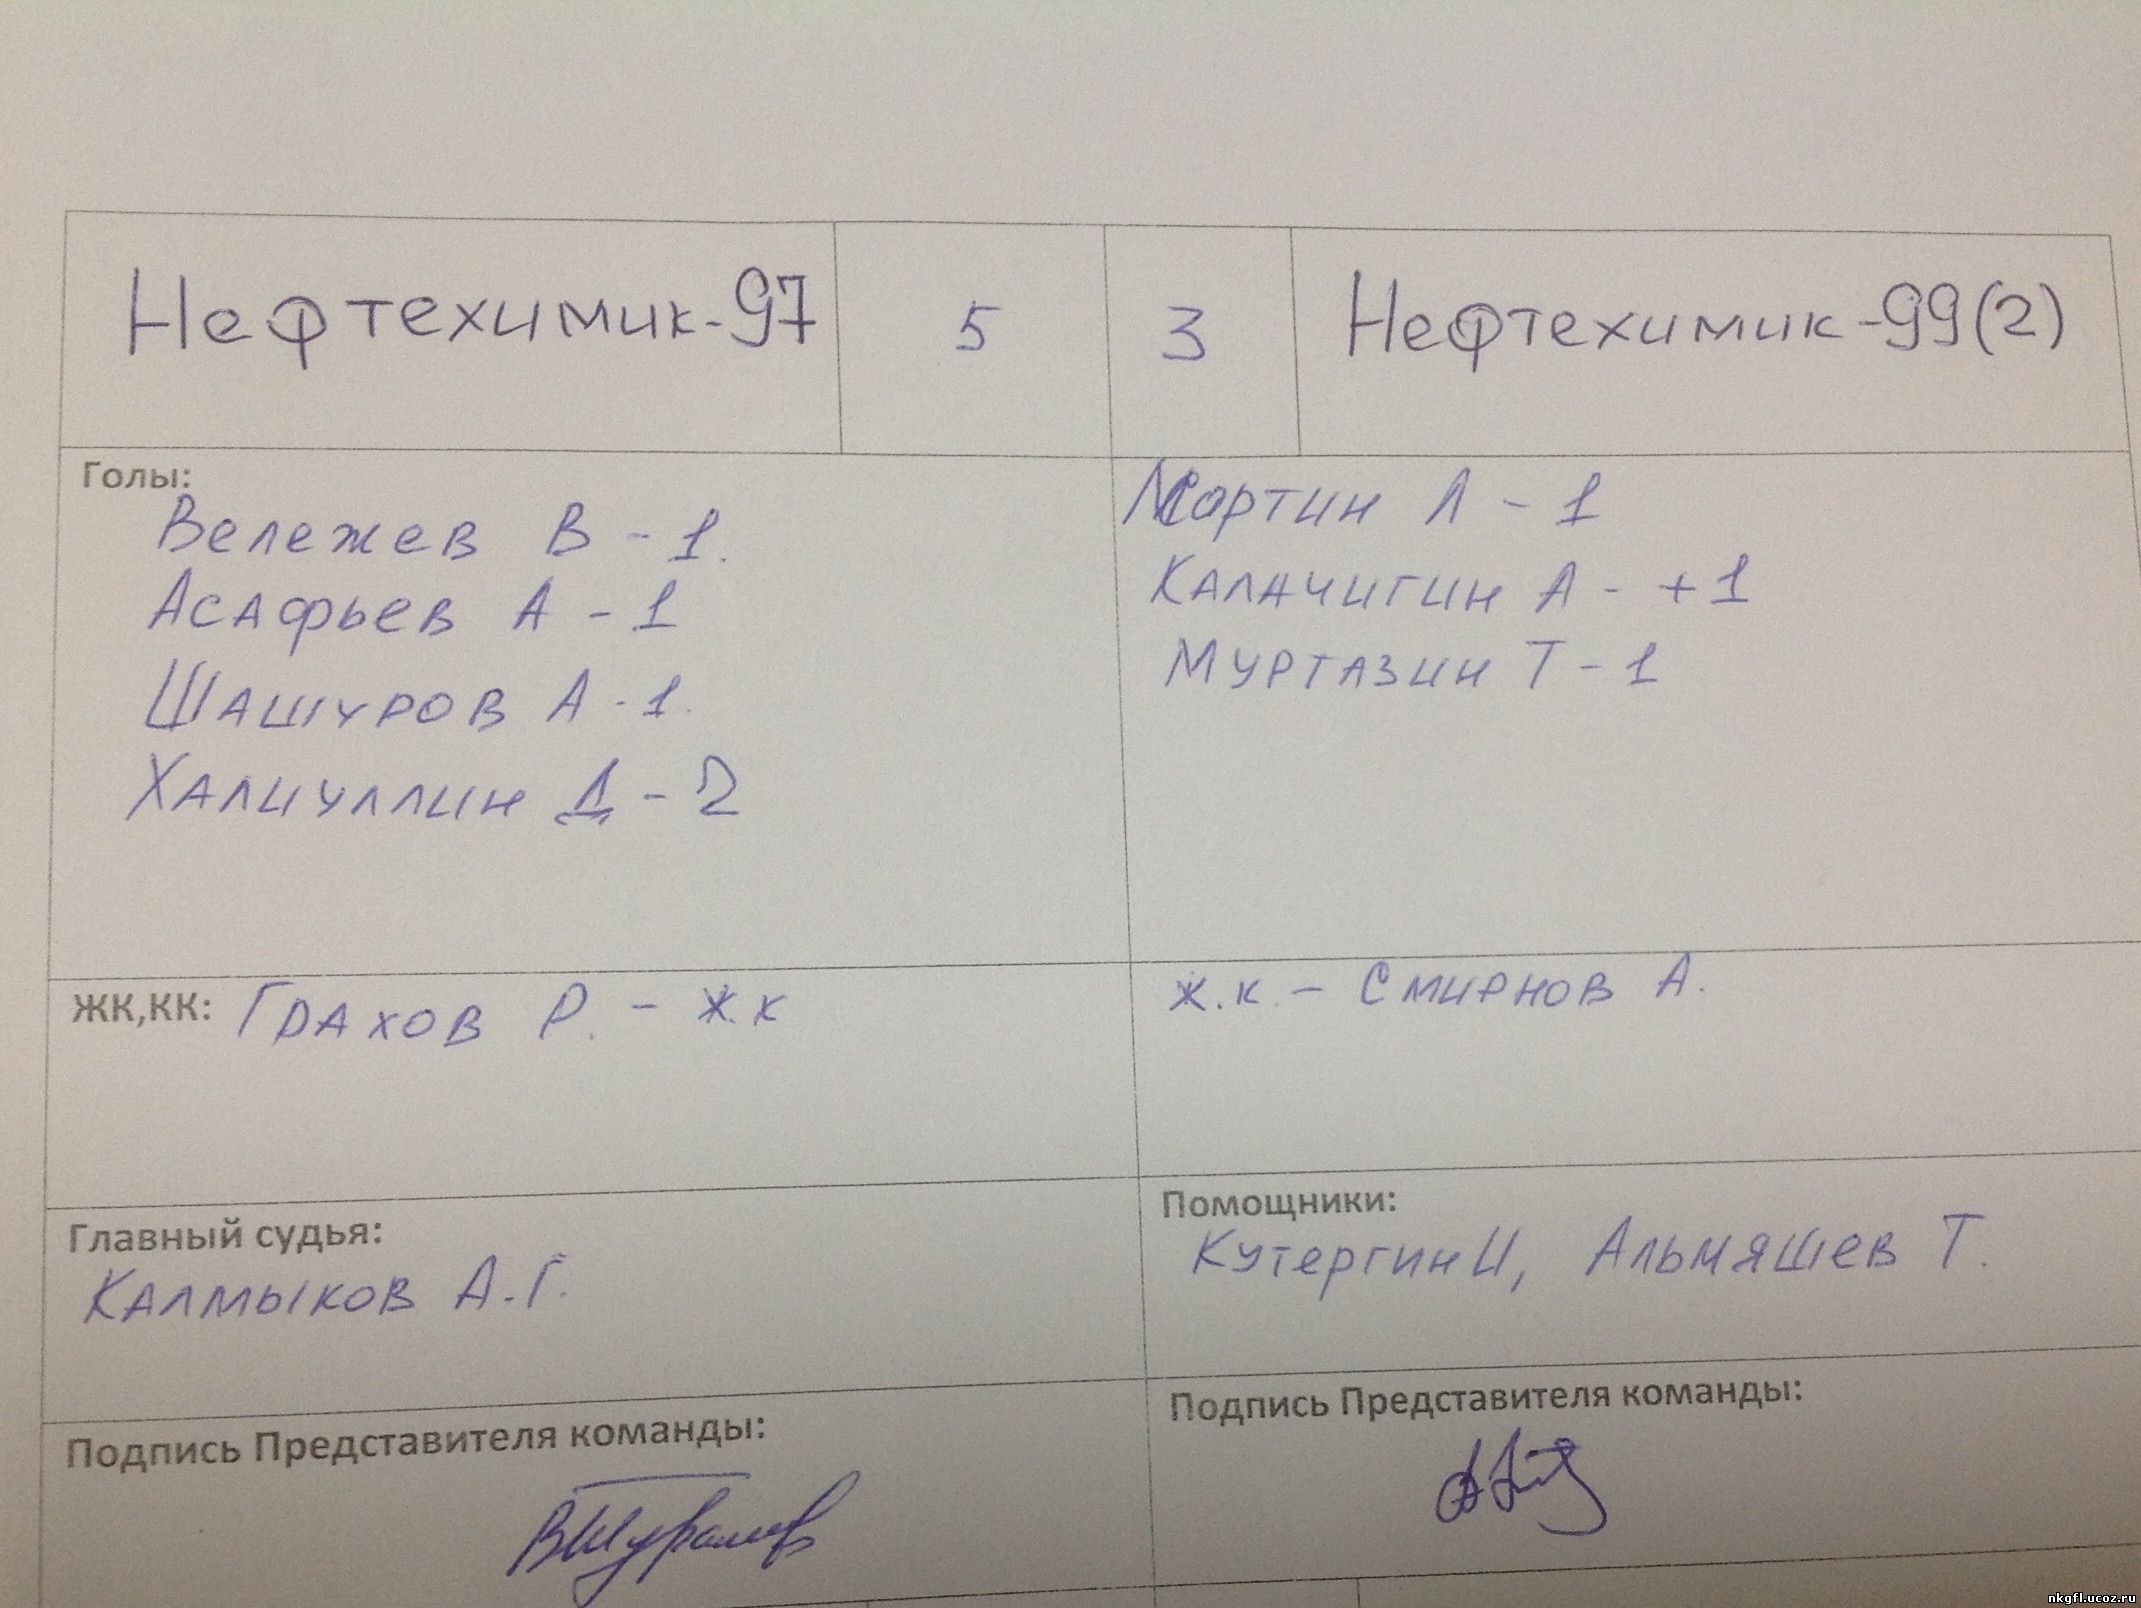 Нефтехимик-97 5 3 Нефтехимик-99(2)
Голы:
Вележев В - 1.
Асафьев А - 1
Шашуров А - 1.
Халиуллин Д - 2
Мортин Л - 1
Калачигин А - +1
Муртазин Т - 1
ЖК,КК: Грахов Р. - ж.к
ж.к. - Смирнов А.
Главный судья:
Калмыков А.Г.
Помощники:
Кутергин И, Альмяшев Т.
Подпись Представителя команды:
Подпись Представителя команды:
nkgfl.ucoz.ru